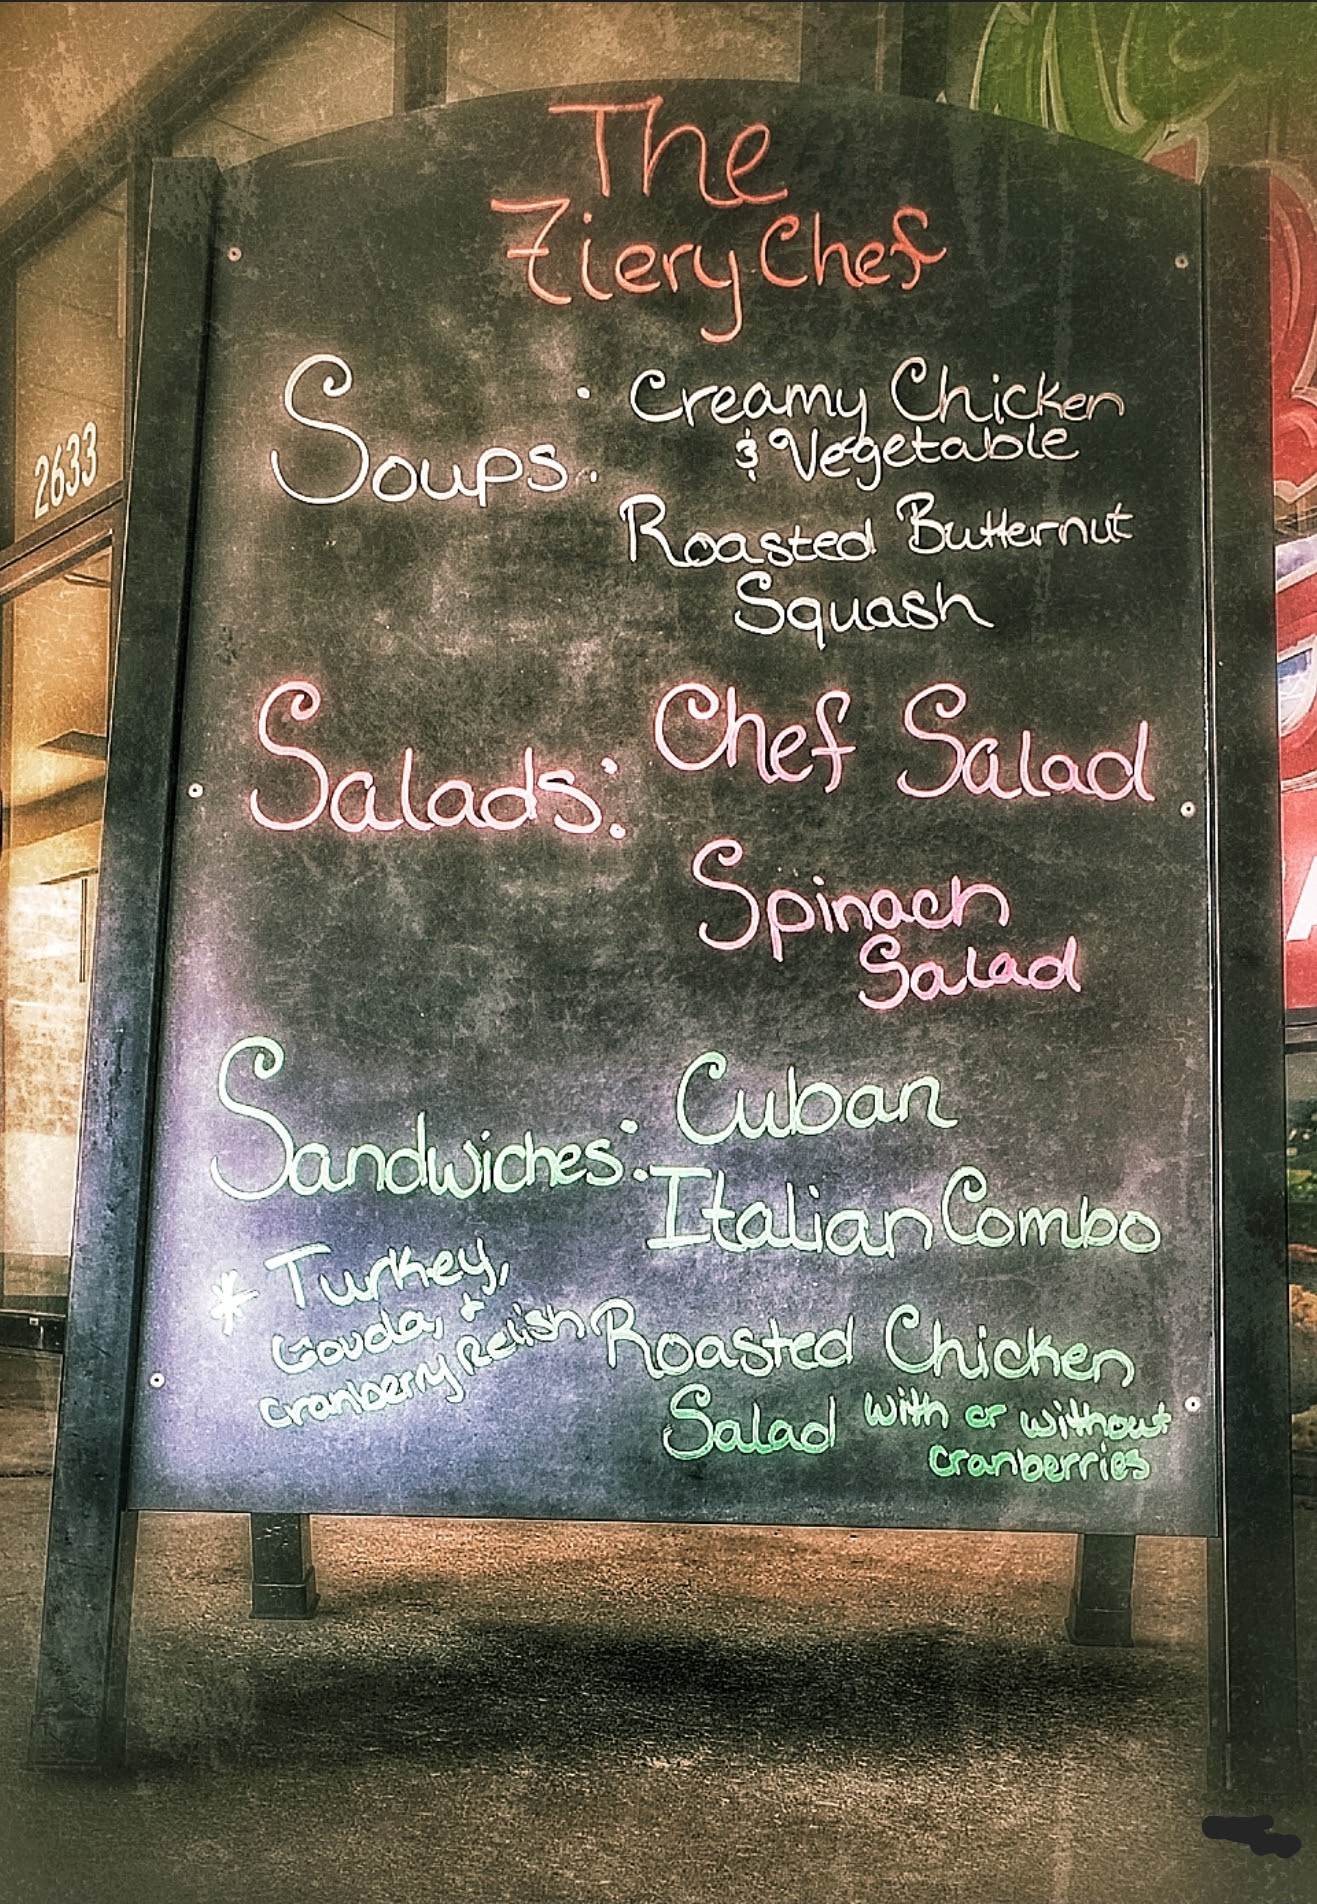 The
Fiery Chef
Soups:
Creamy Chicken
& Vegetable
Roasted Butternut
Squash
Salads:
Chef Salad
Spinach
Salad
Sandwiches:
Cuban
Italian Combo
* Turkey,
Gouda, +
cranberry Relish
Roasted Chicken
Salad with or without
cranberries
2633